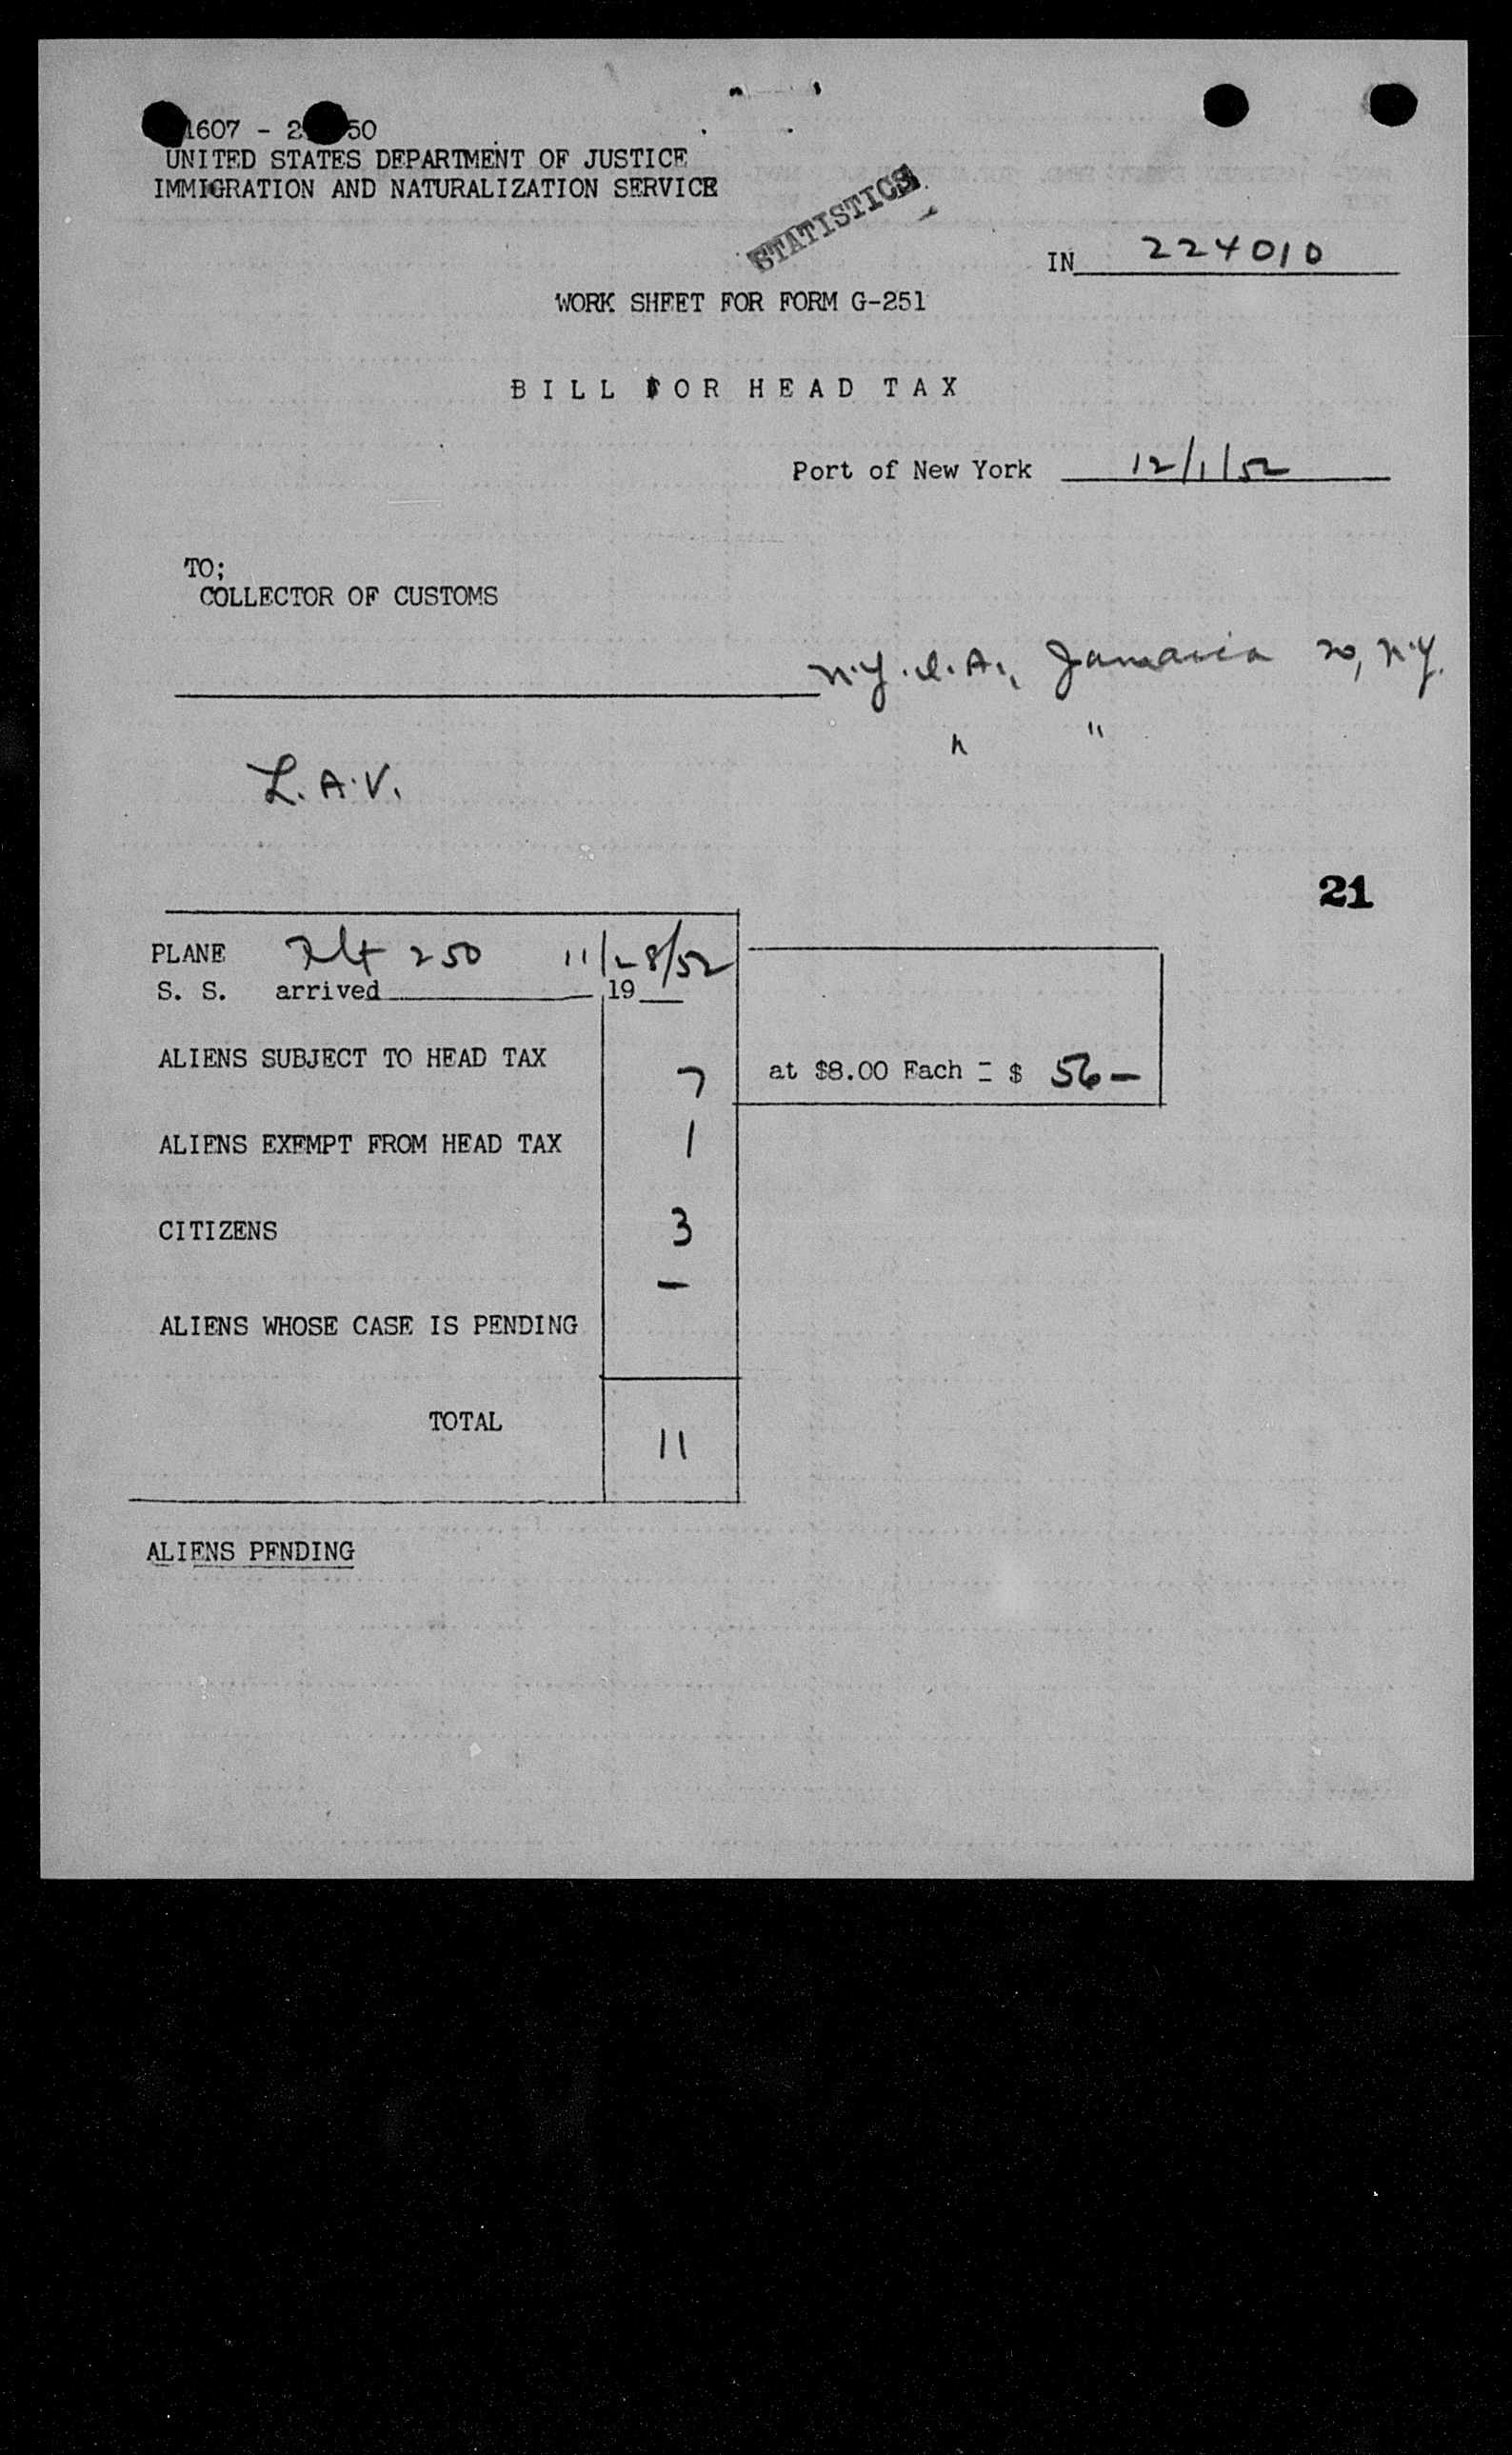 1607 - 2 50
UNITED STATES DEPARTMENT OF JUSTICE
IMMIGRATION AND NATURALIZATION SERVICE
STATISTICS
IN 224010
WORK SHEET FOR FORM G-251
BILL FOR HEAD TAX
Port of New York 12/1/52
TO;
COLLECTOR OF CUSTOMS
N.Y.I.A., Jamaica 20, N.Y.
" "
L.A.V.
21
PLANE Flt 250 11/28/52
S. S. arrived 19
ALIENS SUBJECT TO HEAD TAX 7 at $8.00 Each = $ 56 —
ALIENS EXEMPT FROM HEAD TAX 1
CITIZENS 3
—
ALIENS WHOSE CASE IS PENDING
TOTAL 11
ALIENS PENDING